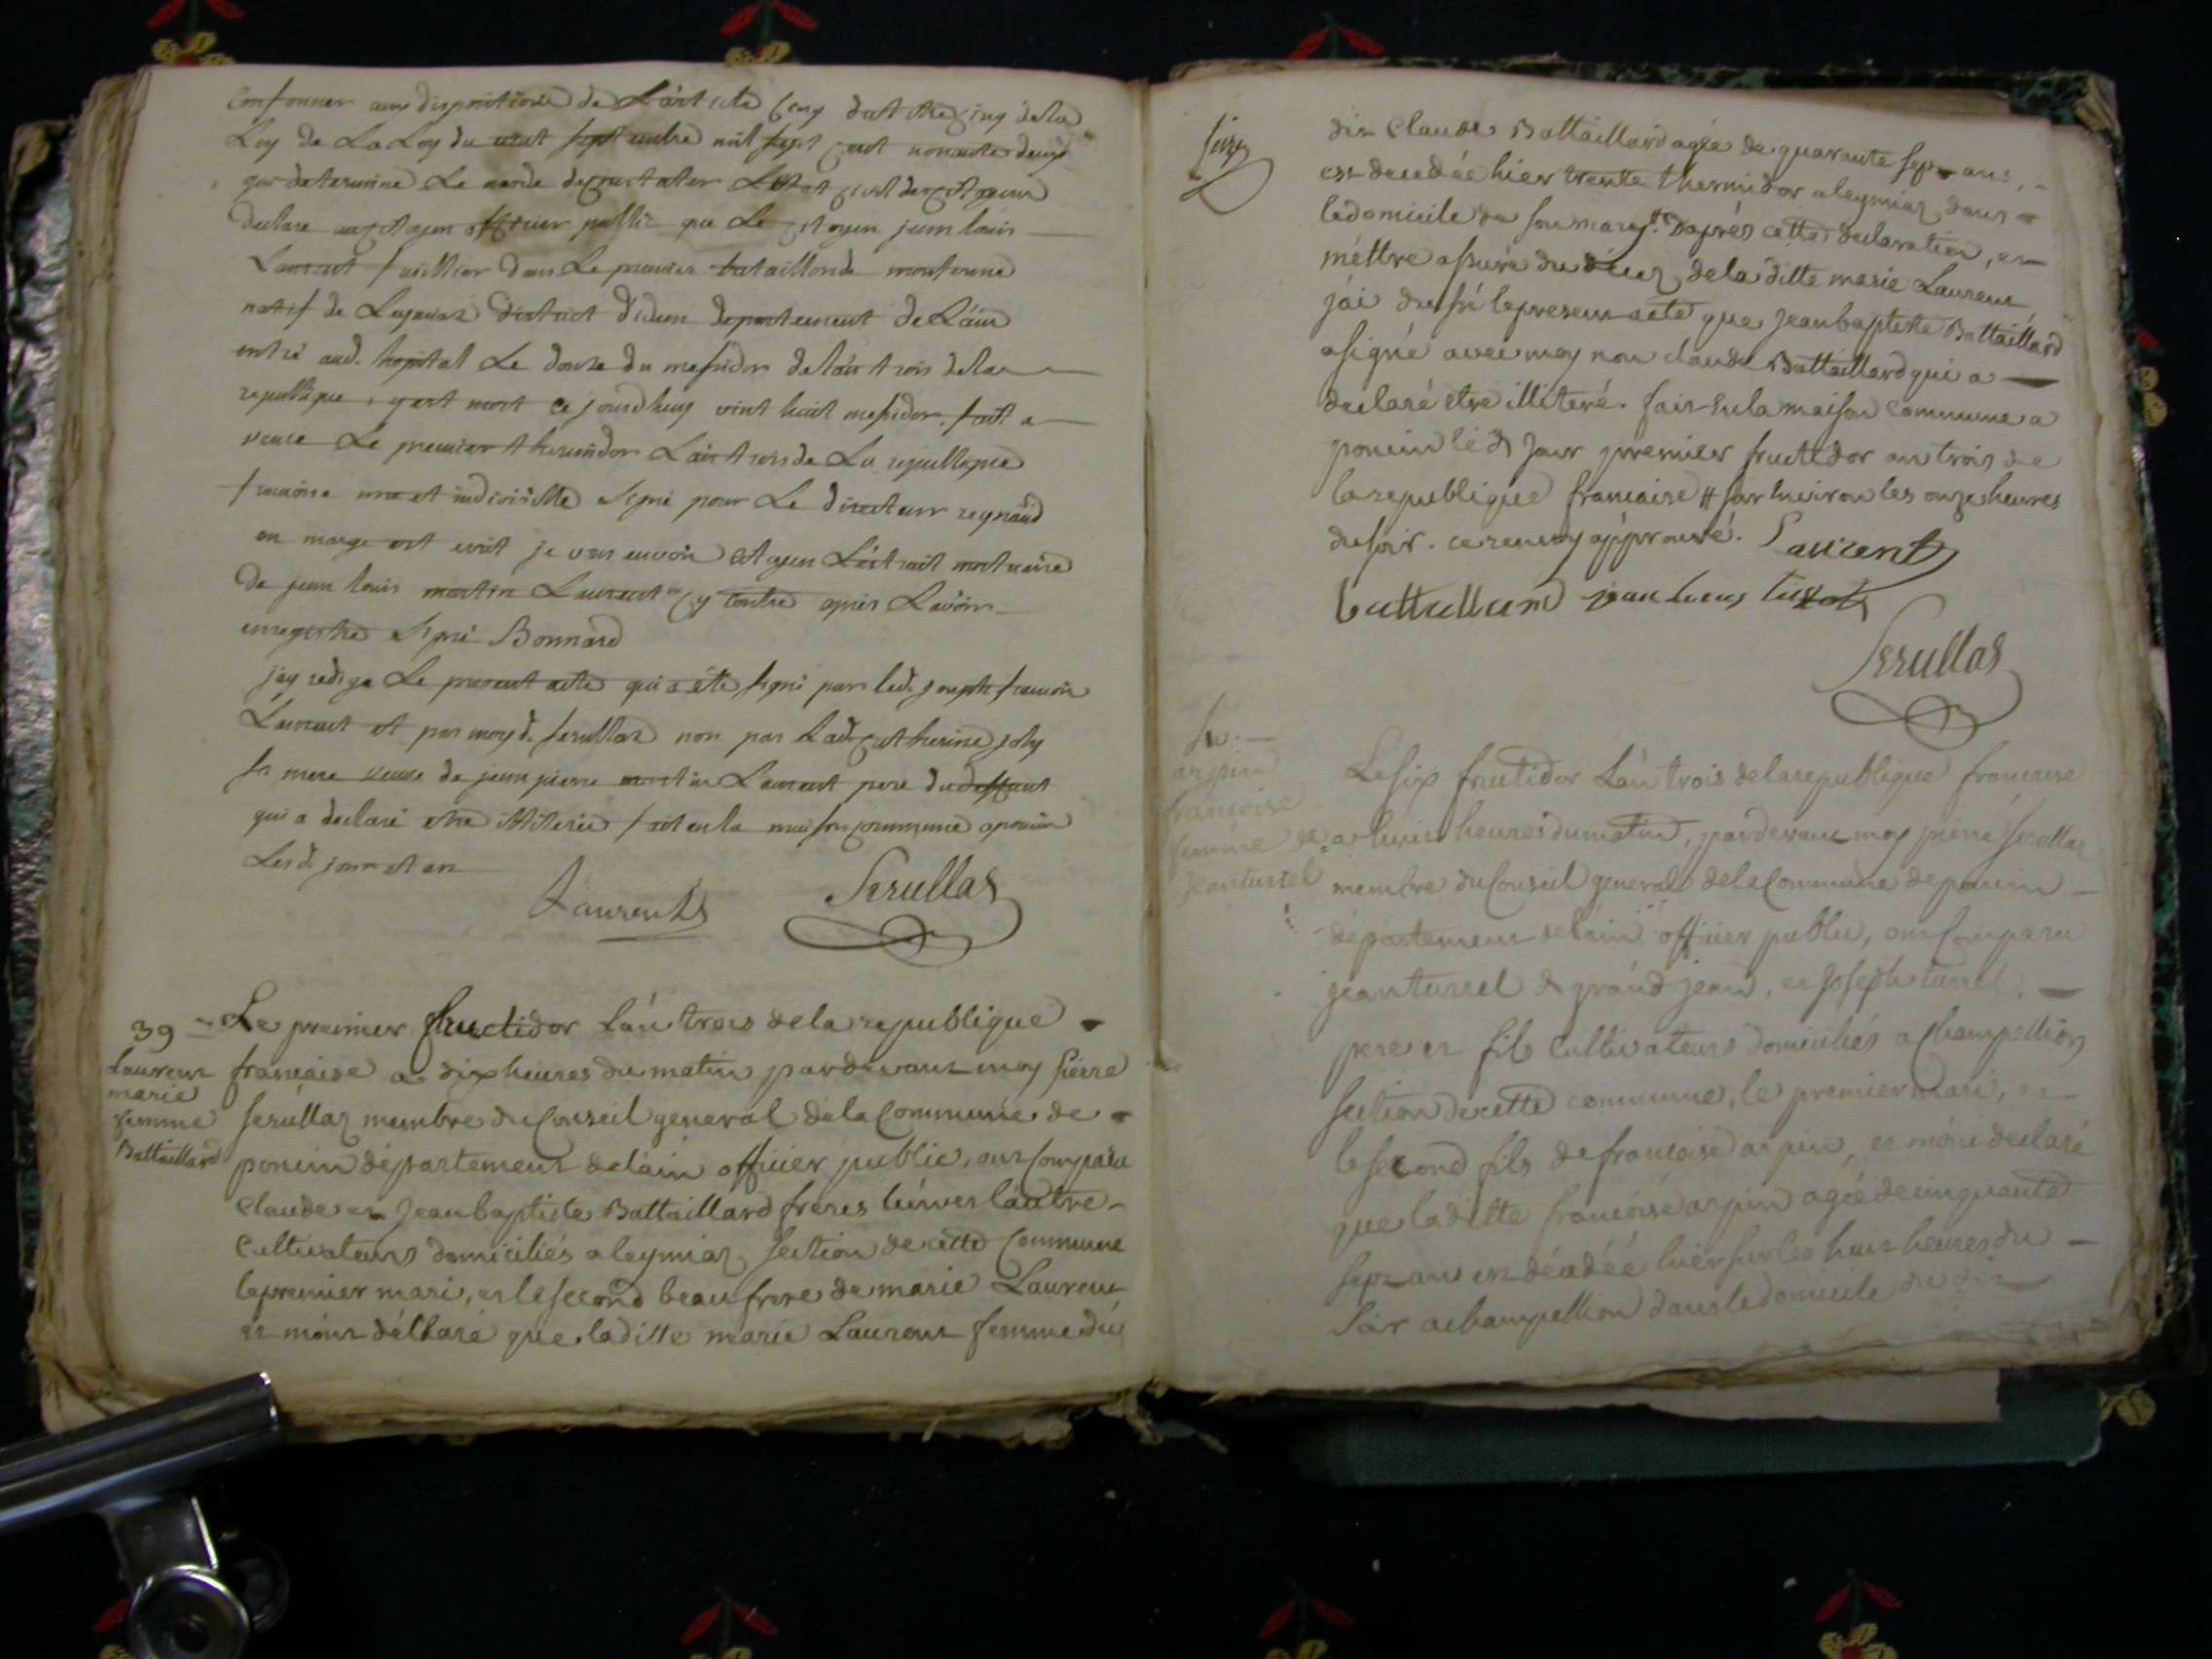 conformer aux dispositions de L'article cinq du titre cinq de la
Loy de La Loy du vint septembre mil sept cent nonante deux
qui determine Le mode de constater L'Etat civil des citoyens
declare au citoyen officier public que Le citoyen jean louis
Laurent fusillier dans Le premier bataillon de
natif de Leymiaz district departement de L'ain
entré aud. hopital Le douze du messidor de l'an trois de la
republique, y est mort ce jourdhuy vint huit messidor. fait a
Le premier thermidor L'an trois de La republique
francoise une et indivisible signé pour Le directeur reynaud
en marge est ecrit je vous envoie citoyen L'extrait mortuaire
de jean louis martin Laurent cy contre apres L'avoir
enregistre signé Bonnard
j'ay redigé Le present acte qui a été signé par led. joseph francois
Laurent et par moy d. serullaz non par Lad. catherine joly
sa mere veuve de jean pierre martin Laurent pere du deffunt
qui a declaré etre illiterée fait en la maison commune a poncin
Lesd. jour et an
Laurent Serullas
39 Le premier fructidor L'an trois de la republique
Laurent francaise a dix heures du matin pardevant moy Pierre
marie
femme serullaz membre du Conseil general de la Commune de
Battaillard poncin departement de l'ain officier public, ont comparu
Claude et Jean baptiste Battaillard freres l'un et l'autre
Cultivateurs domiciliés a leymiaz section de cette Commune
le premier mari, et le second beau frere de marie Laurent
et m'ont déclaré que laditte marie Laurent femme du
dit Claude Battaillard agée de quarante sept ans,
est decedée hier trente thermidor a leymiaz dans
le domicile de son mary. D'aprés cette declaration, et
m'éttre assuré du décez de la ditte marie Laurent
j'ai dressé le present acte que Jean baptiste Battaillard
a signé avec moy non claude Battaillard qui a
declaré etre illiteré. fait en la maison commune a
poncin led. jour premier fructidor an trois de
la republique francaise # sur les onze heures
du soir. ce renvoy approuvé. Laurent
battallard jean
Serullas
arpin
francoise
femme de
jean turrel
Le six fructidor L'an trois de la republique francaise
a huit heures du matin, pardevant moy pierre Serullaz
membre du Conseil general de la Commune de poncin
département de l'ain officier public, ont Comparu
jean turrel d. grand jean, et joseph turrel,
pere et fils Cultivateurs domiciliés a Champeillon
section de cette commune, le premier mari, et
le second fils de francoise arpin, et m'ont declaré
que laditte francoise arpin agée de cinquante
sept ans est décedée hier sur les huit heures du
soir a champeillon dans le domicile du dit